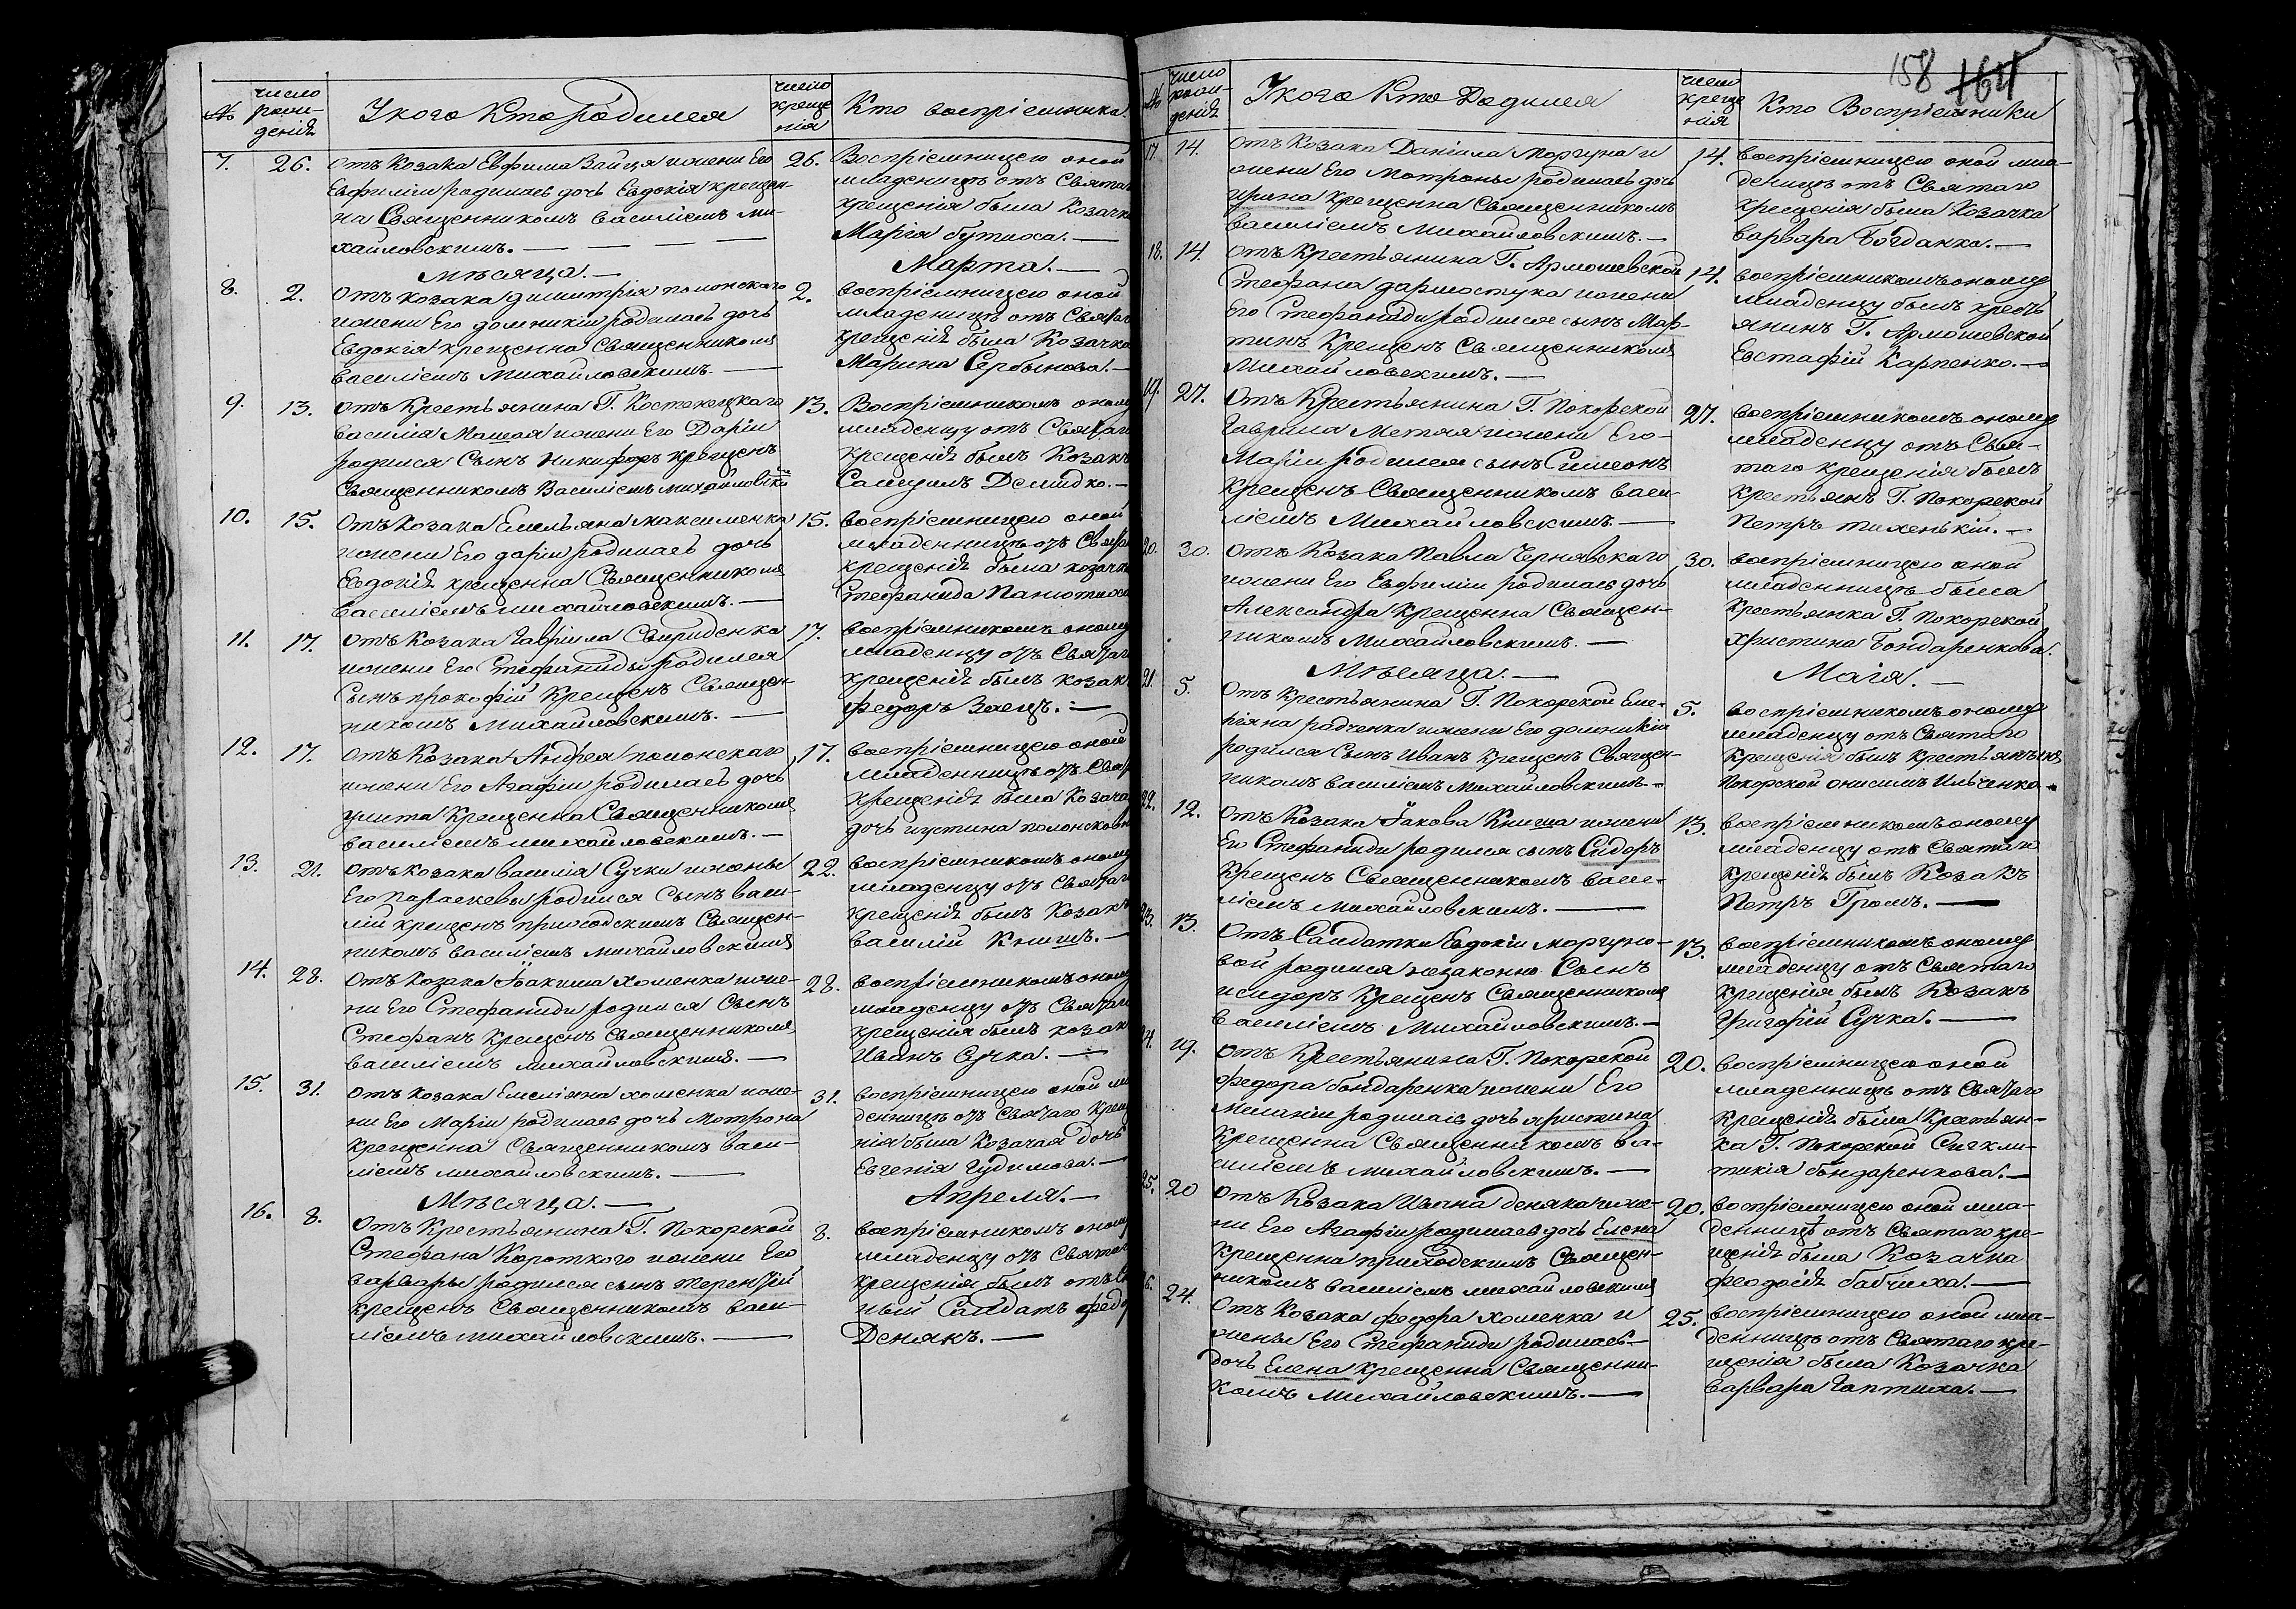 №
число
рож-
денія
У кого Кто родился
число
креще
нія
Кто воспріемники.
7.
26.
отъ Козака Евфима Зайця и жени Его
Евфиміи родилась дочь Евдокія крещен-
на Священникомъ Василіемъ Ми-
хайловскимъ.
26.
Воспріемницею оной
младеницѣ отъ Свята
крещенія была Козачка
Марія
Мѣсяца.
Марта.
8.
2.
отъ козака димитрія полонскаго
и жени Его домникіи родилась дочь
Евдокія крещенна Священникомъ
Василіемъ Михайловскимъ.
2.
воспріемницею оной
младеницѣ отъ Святаг
крещенія была Козачка
Марина Сербынова.
9.
13.
отъ Крестьянина Г.
Василія и жени Его Даріи
родился Сынъ Никифоръ крещенъ
Священникомъ Василіемъ михайловскі
13.
Воспріемникомъ оному
младенцу отъ Святаг
крещенія былъ Козакъ
Самуилъ Демидко.
10.
15.
отъ Козака Емельяна максименка
и жени Его даріи родилась дочь
Евдокія крещенна Священникомъ
Василіемъ михайловскимъ.
15.
воспріемницею оной
младенницѣ отъ Свята
крещенія была козачка
Стефанида
11.
17.
отъ Козака Гавріила Свириденка
и жени Его Стефаниды родился
Сынъ прокофій Крещенъ Священ-
никомъ Михайловскимъ.
17.
воспріемникомъ оному
младенцу отъ Святаг
крещенія былъ козакъ
федоръ Заецъ.
12.
17.
отъ Козака Андрея полонскаго
и жени Его Агафіи родилась дочь
улита Крещенна Священникомъ
василіемъ михайловскимъ.
17.
воспріемницею оной
младенницѣ отъ Свят
крещенія была Козача
дочь иустина полонсков
13.
21.
отъ козака василія Сучки и жены
Его параскевы родился Сынъ васи-
лій крещенъ приходскимъ Священ-
никомъ василіемъ михайловскимъ
22.
воспріемникомъ оному
младенцу отъ Святаг
крещенія былъ Козакъ
василій Книшъ.
14.
28.
отъ Козака Іоакима Хоменка и же-
ни Его Стефаниды родился Сынъ
Стефанъ Крещенъ Священникомъ
василіемъ михайловскимъ.
28.
воспріемникомъ оному
младенцу отъ Святаг
крещенія былъ козак
Иванъ Сучка.
15.
31.
отъ козака Емеліяна хоменка и же-
ни Его Маріи родилась дочь Мотрона
Крещенна Священникомъ васи-
ліемъ михайловскимъ.
31.
воспріемницею оной мла
денницѣ отъ Святаго Крещ
нія была Козачая дочь
Евгенія Гудимова.
Мѣсяца.
Апреля.
16.
8.
отъ Крестьянина Г. Покорской
Стефана Короткого и жени Его
варвары родился сынъ терентій
крещенъ Священникомъ васи-
ліемъ михайловскимъ.
8.
воспріемникомъ оному
младенцу отъ Святаг
крещенія былъ отъ
ный Салдатъ федо
Денякъ.
158
164
№
число
рож-
денія
У кого Кто Родился
число
креще
нія
Кто Воспріемники
17.
14.
отъ Козака Даніила Моргуна и
жени Его Мотроны родилась дочь
ирина крещенна Священникомъ
василіемъ Михайловскимъ.
14.
воспріемницею оной мла-
деницѣ отъ Святаго
крещенія была Козачка
варвара Богданка.
18.
14.
отъ Крестьянина Г. Армашевской
Стефана дармостука и жени
Его Стефаниды родился сынъ Мар-
тинъ Крещенъ Священникомъ
Михайловскимъ.
14.
воспріемникомъ оному
младенцу былъ кресть
янинъ Г. Армашевской
Евстафій Карпенко.
19.
27.
отъ Крестьянина Г. Покорской
Гавриила Метлая и жени Его
Маріи родился сынъ Симеонъ
Крещенъ Священникомъ васи-
ліемъ Михайловскимъ
27.
воспріемникомъ оному
младенцу отъ Свя-
таго крещенія былъ
крестьянъ Г. Покорской
Петръ тихенькій.
20.
30.
отъ Козака Павла Чернявскаго
и жени Его Евфиміи родилась дочь
Александра Крещенна Священ-
никомъ Михайловскимъ.
30.
воспріемницею оной
младенницѣ была
Крестьянка Г. Покорской
Христина Бондаренкова.
Мѣсяца.
Маія.
21.
5.
отъ Крестьянина Г. Покорской Еме-
ріяна радченка и жени Его домникіи
родился Сынъ Иванъ Крещенъ Священ-
никомъ василіемъ Михайловскимъ.
5.
воспріемникомъ оному
младенцу отъ Святаго
Крещенія былъ Крестьянинъ
Покорской онисимъ Ильченко.
22.
12.
отъ Козака Іакова Книша и жени
Его Стефаниды родился сынъ Сидоръ
Крещенъ Священникомъ васи-
ліемъ Михайловскимъ.
13.
воспріемникомъ оному
младенцу отъ Святаго
Крещенія былъ Козакъ
Петръ Громъ.
23.
13.
отъ Салдатки Евдокіи Моргуно-
вой родился незаконно Сынъ
исидоръ Крещенъ Священникомъ
василіемъ Михайловскимъ.
13.
воспріемникомъ оному
младенцу отъ Святаго
Крещенія былъ Козакъ
Григорій Сучка.
24.
19.
отъ Крестьянина Г. Покорской
федора бондаренка и жени Его
Меланіи родилась дочь христина
Крещенна Священникомъ ва-
силіемъ михайловскимъ.
20.
воспріемницею оной
младенницѣ отъ Святаго
Крещенія была Крестьян-
ка Г. Покорской Синкли-
тикія бондаренкова.
25.
20
отъ Козака Ивана деняка и же-
ни Его Агафіи родилась дочь Елена
Крещенна приходскимъ Священ-
никомъ василіемъ михайловскимъ
20.
воспріемницею оной мла-
денницѣ отъ Святаго кре-
щенія была Козачка
феодосія бабчиха.
26.
24.
отъ Козака федора хоменка и
жены Его Стефаниды родилась
дочь Елена крещенна Священни-
комъ Михайловскимъ.
25.
воспріемницею оной мла-
денницѣ отъ Святаго кре-
щенія была Козачка
варвара Гаптиха.